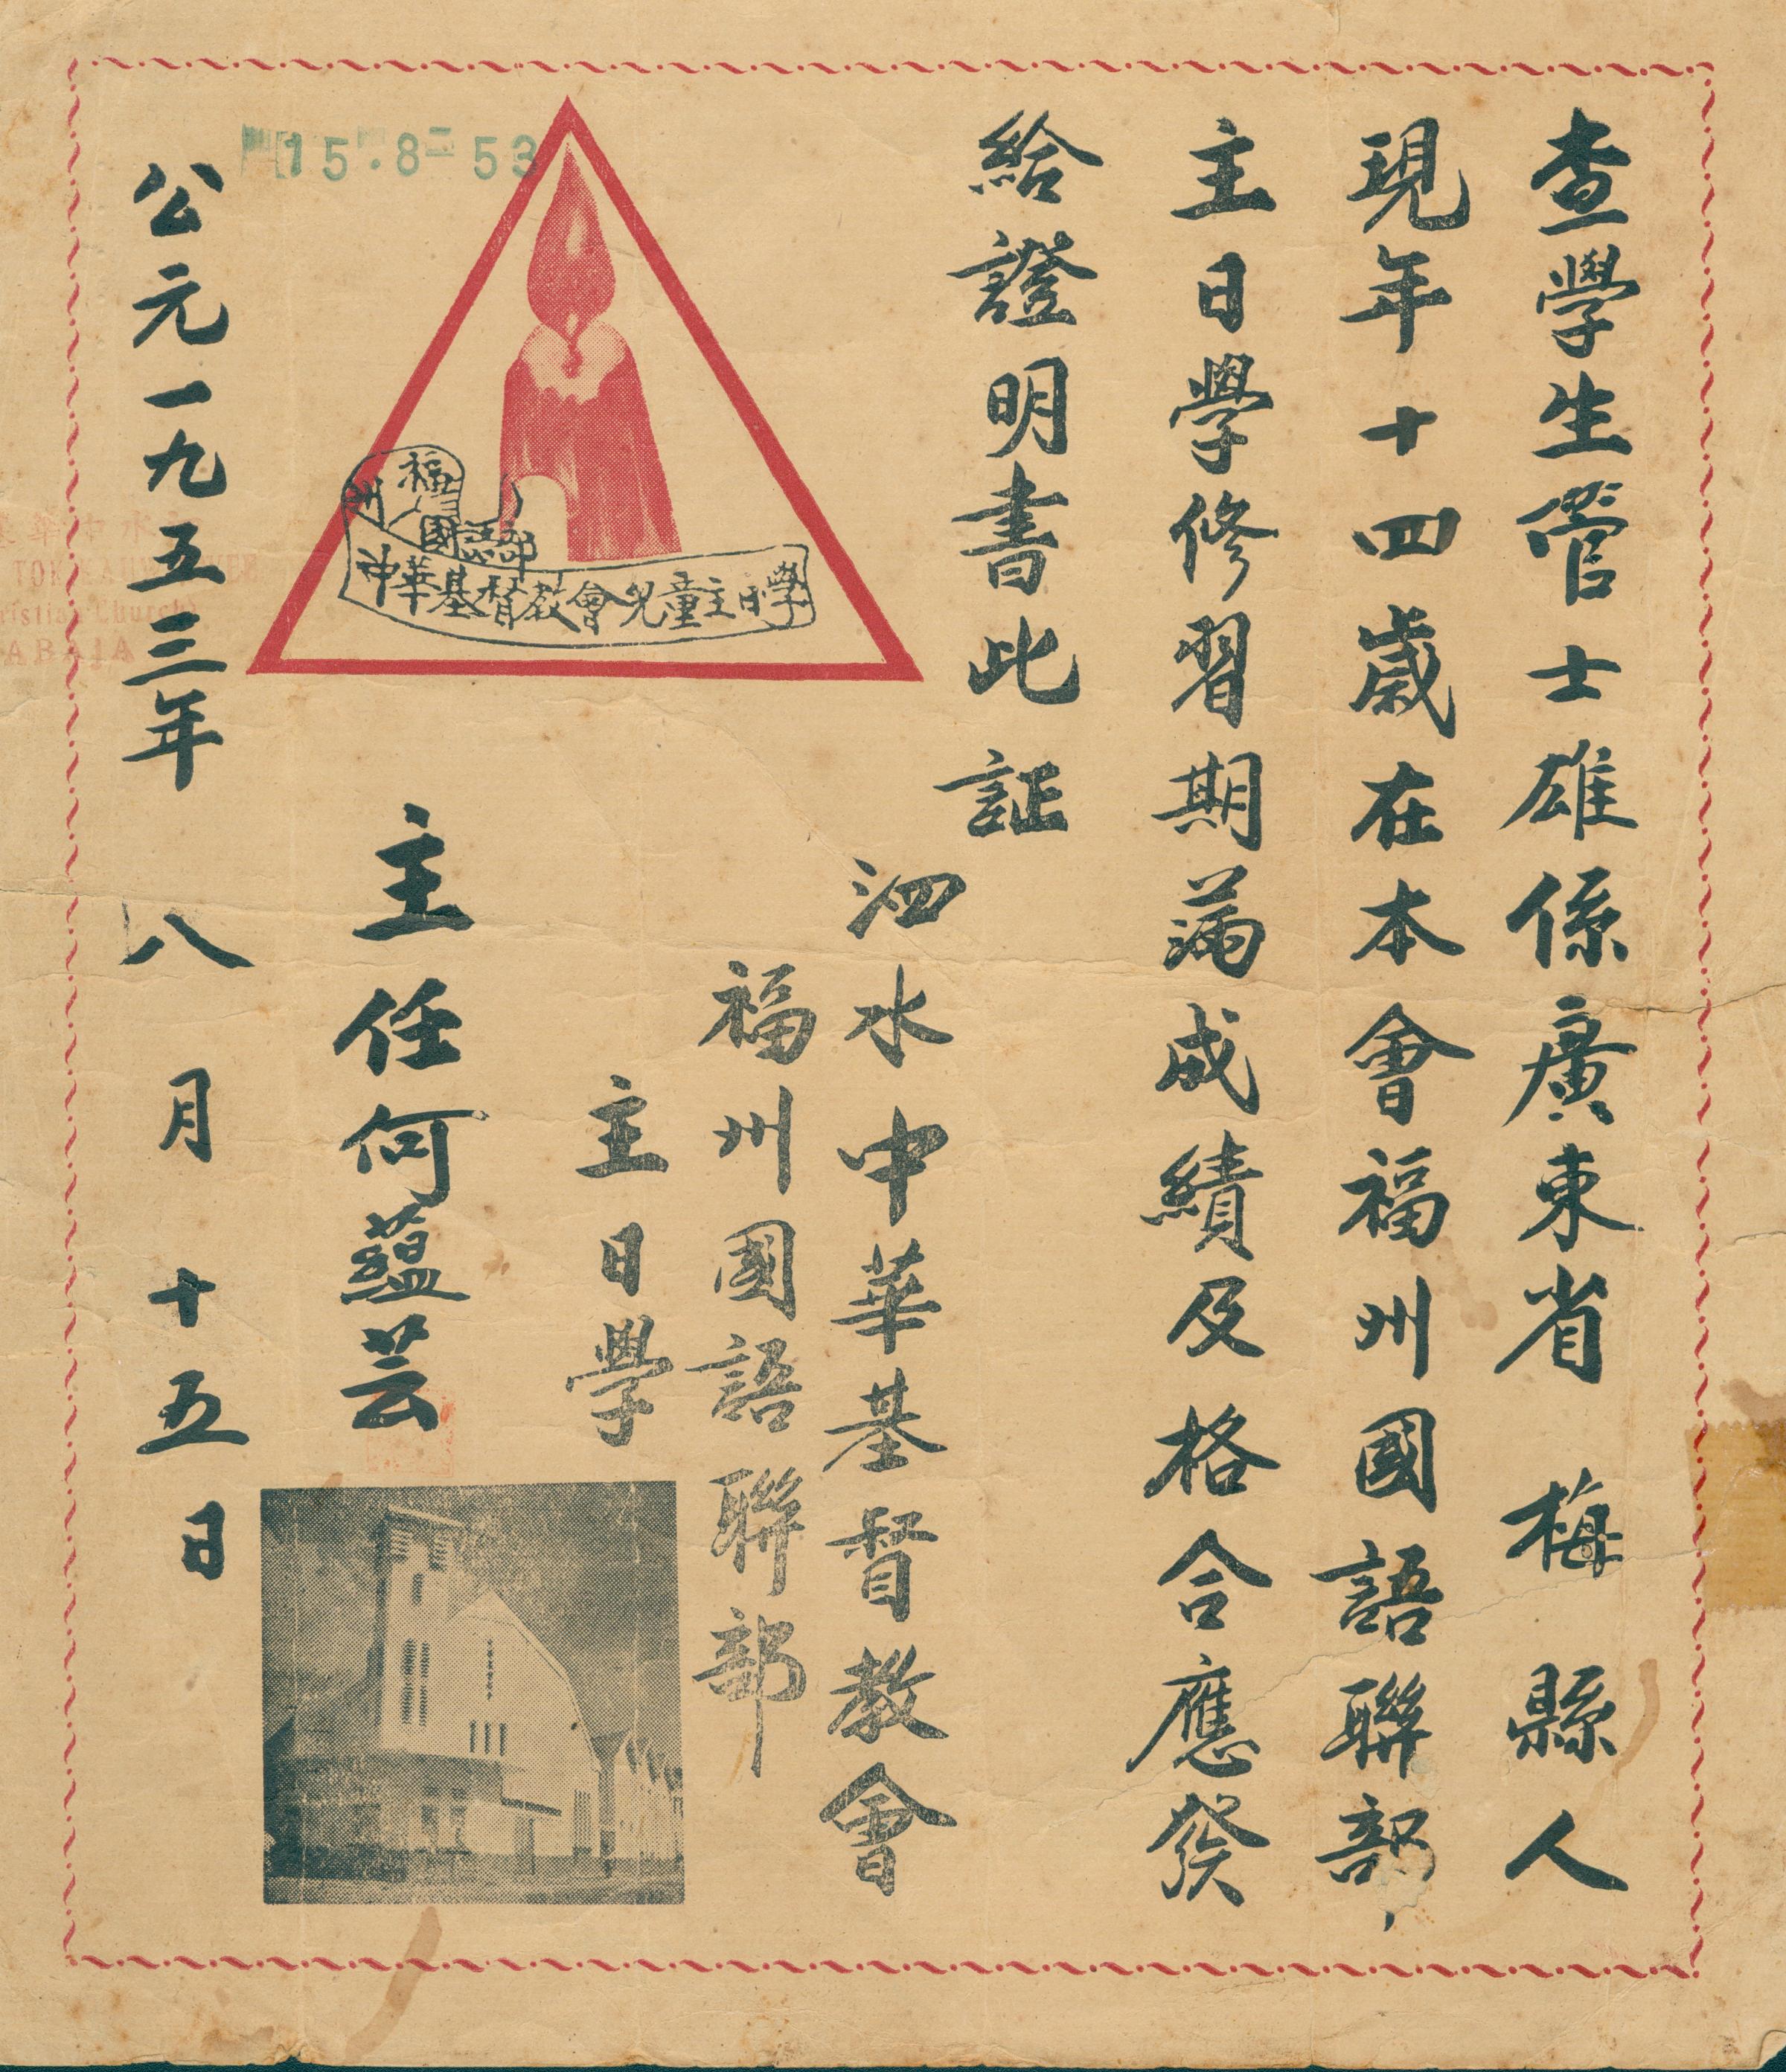 查學生管士雄係廣東省梅縣人
現年十四歲在本會福州國語聯部
主日學修習期滿成績及格合應發
給證明書此証
泗水中華基督教會
福州國語聯部
主日學
主任何蘊芸
公元一九五三年八月十五日
15·8-53
福州
國語部
中華基督教會兒童主日學